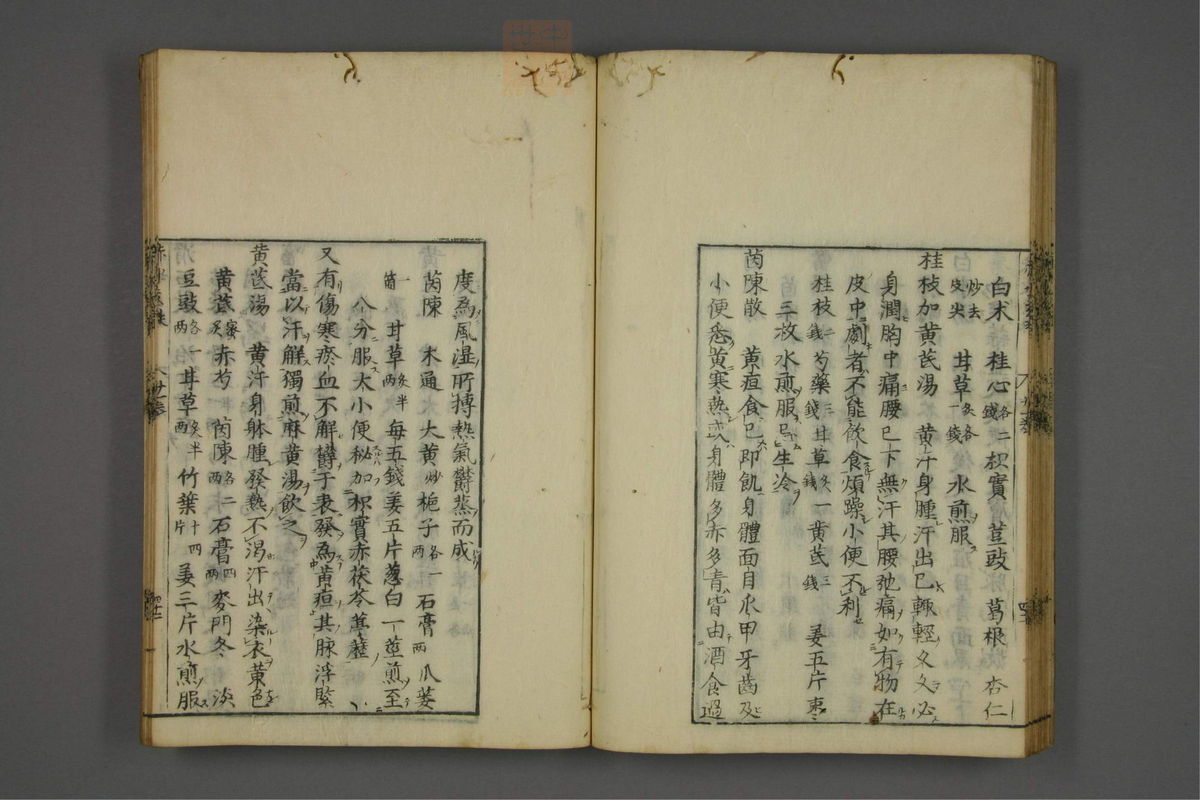 白朮 桂心各二錢 枳實 荳豉 葛根 杏仁
炒去皮尖 甘草炙各一錢 水煎服
桂枝加黃芪湯 黃汗身腫汗出已輒輕久久必
身潤胸中痛腰已下無汗其腰弛痛如有物在
皮中劇者不能飲食煩躁小便不利
桂枝 芍藥三錢 甘草炙一錢 黃芪三錢 姜五片棗
三枚水煎服忌生冷
茵陳散 黃疸食已即飢身體面目爪甲牙齒及
小便悉黃寒熱或身體多赤多青皆由酒食過
度為風湿所搏熱氣欝蒸而成
茵陳 木通 大黃炒 梔子各一兩 石膏兩 瓜蔞
一箇 甘草炙半兩 每五錢姜五片葱白一莖煎至
八分服大小便秘加枳實赤茯苓葶藶
又有傷寒瘀血不解欝于表發為黃疸其脉浮緊
當以汗解獨煎麻黃湯飲之
黃芪湯 黃汗身躰腫發熱不渴汗出染衣黃色
黃芪蜜炙 赤芍 茵陳各二兩 石膏四兩 麥門冬 淡
豆豉各一兩 甘草炙半兩 竹葉十四片 姜三片水煎服